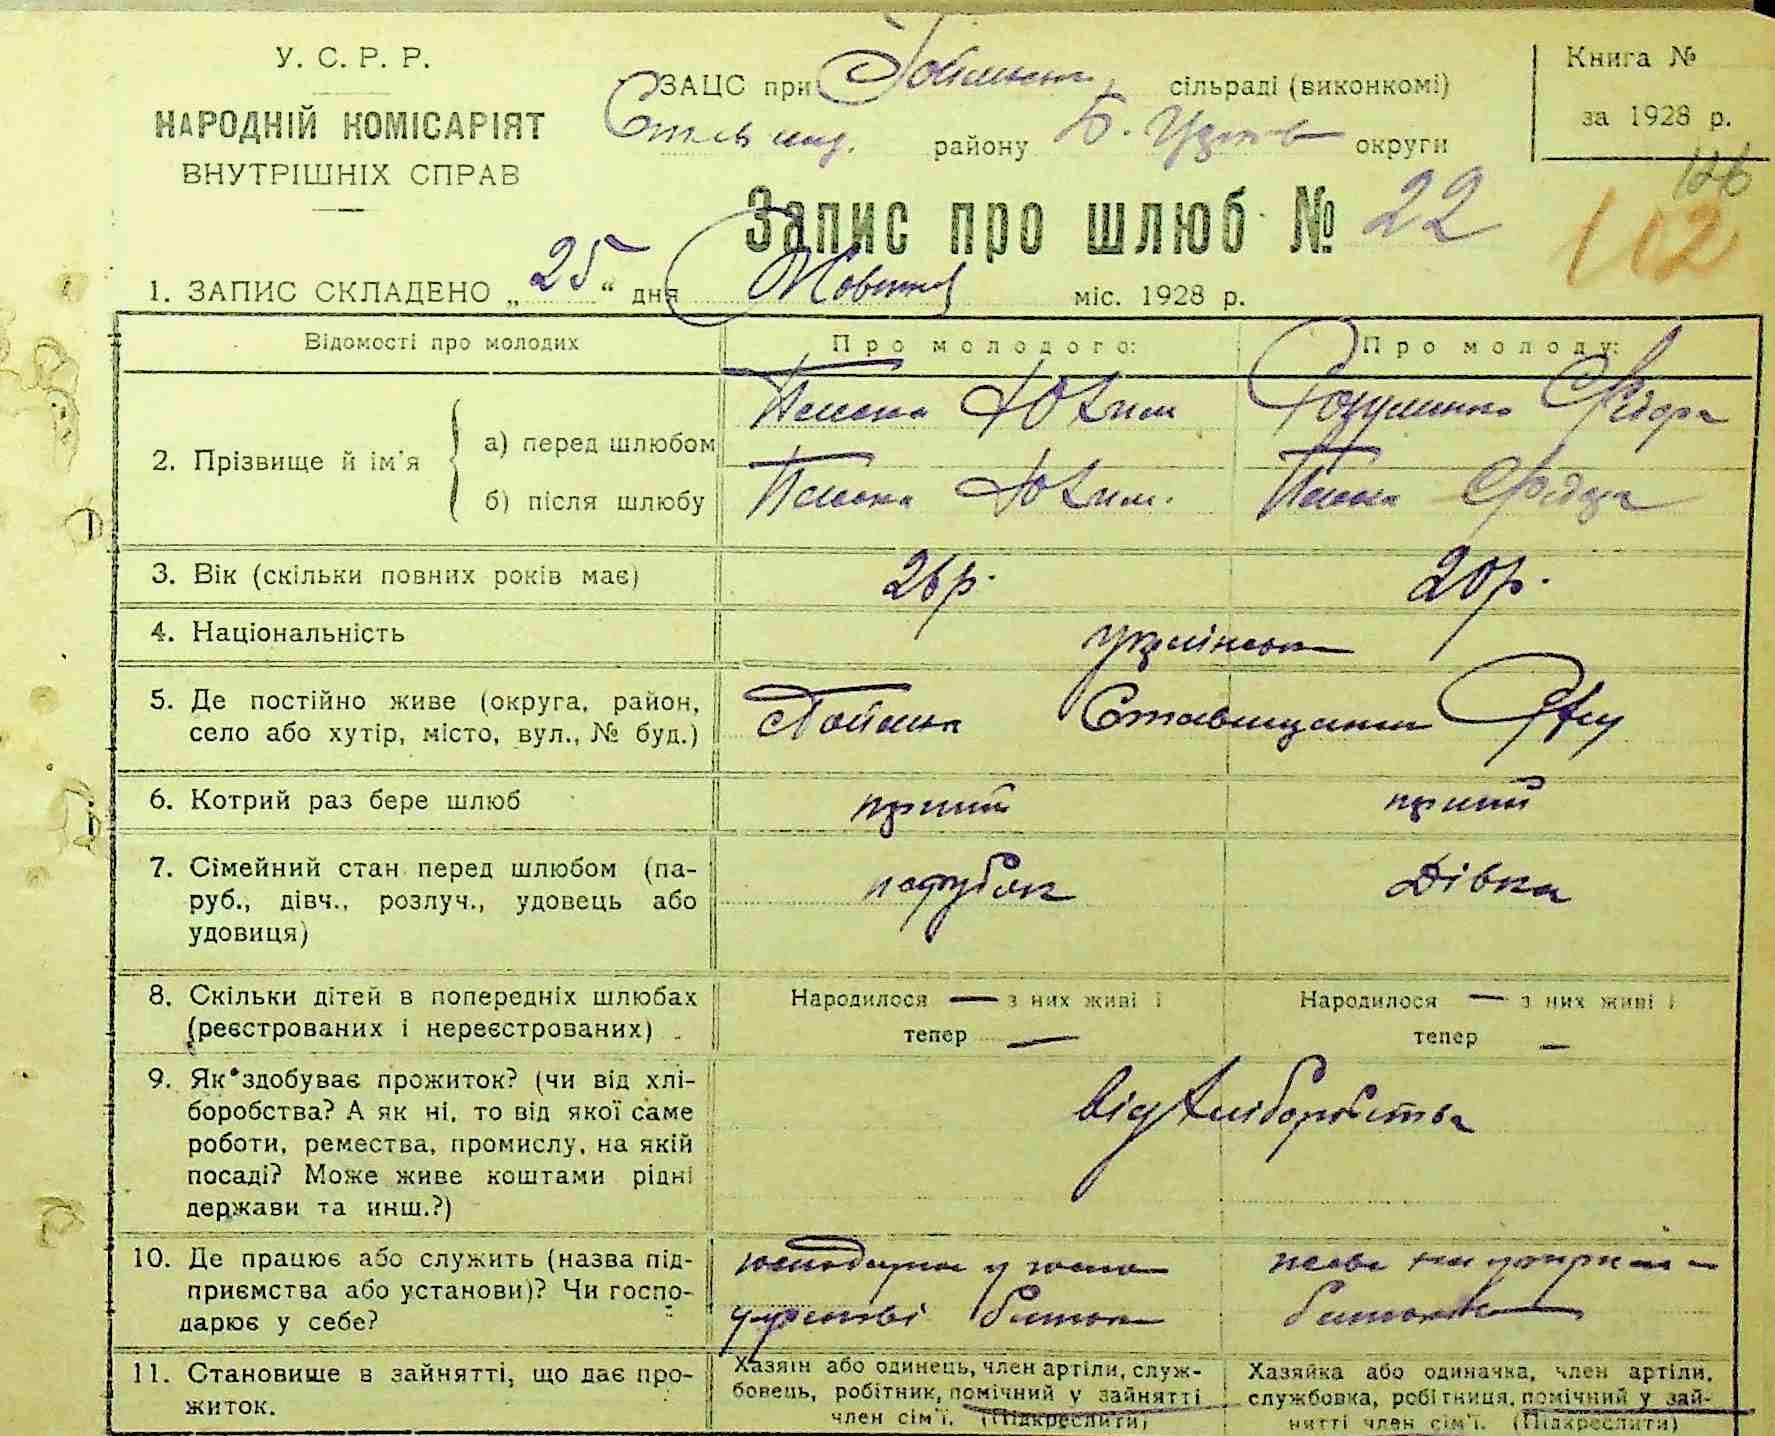 У. С. Р. Р.
НАРОДНІЙ КОМІСАРІЯТ
ВНУТРІШНІХ СПРАВ
ЗАЦС при сільраді (виконкомі)
району Б. Церкв округи
Книга №
за 1928 р.
126
112
Запис про шлюб № 22
1. ЗАПИС СКЛАДЕНО „25“ дня Жовтня міс. 1928 р.
Відомості про молодих Про молодого: Про молоду:
2. Прізвище й ім'я
а) перед шлюбом Юхим Федора
б) після шлюбу Юхим. Федора
3. Вік (скільки повних років має) 26 р. 20 р.
4. Національність українськ
5. Де постійно живе (округа, район,
село або хутір, місто, вул., № буд.) Ставищанськ
6. Котрий раз бере шлюб перший перший
7. Сімейний стан перед шлюбом (па-
руб., дівч., розлуч., удовець або
удовиця) парубок Дівка
8. Скільки дітей в попередніх шлюбах
(реєстрованих і нереєстрованих)
Народилося — з них живі і
тепер —
Народилося — з них живі і
тепер —
9. Як здобуває прожиток? (чи від хлі-
боробства? А як ні, то від якої саме
роботи, ремества, промислу, на якій
посаді? Може живе коштами рідні
держави та инш.?)
від хліборобства
10. Де працює або служить (назва під-
приємства або установи)? Чи госпо-
дарює у себе?
господарює у госпо
дарстві батьк
батьків
11. Становище в зайнятті, що дає про-
житок.
Хазяїн або одинець, член артіли, служ-
бовець, робітник, помічний у зайнятті
член сім'ї. (Підкреслити)
Хазяйка або одиначка, член артіли,
службовка, робітниця, помічний у зай-
нятті член сім'ї. (Підкреслити)